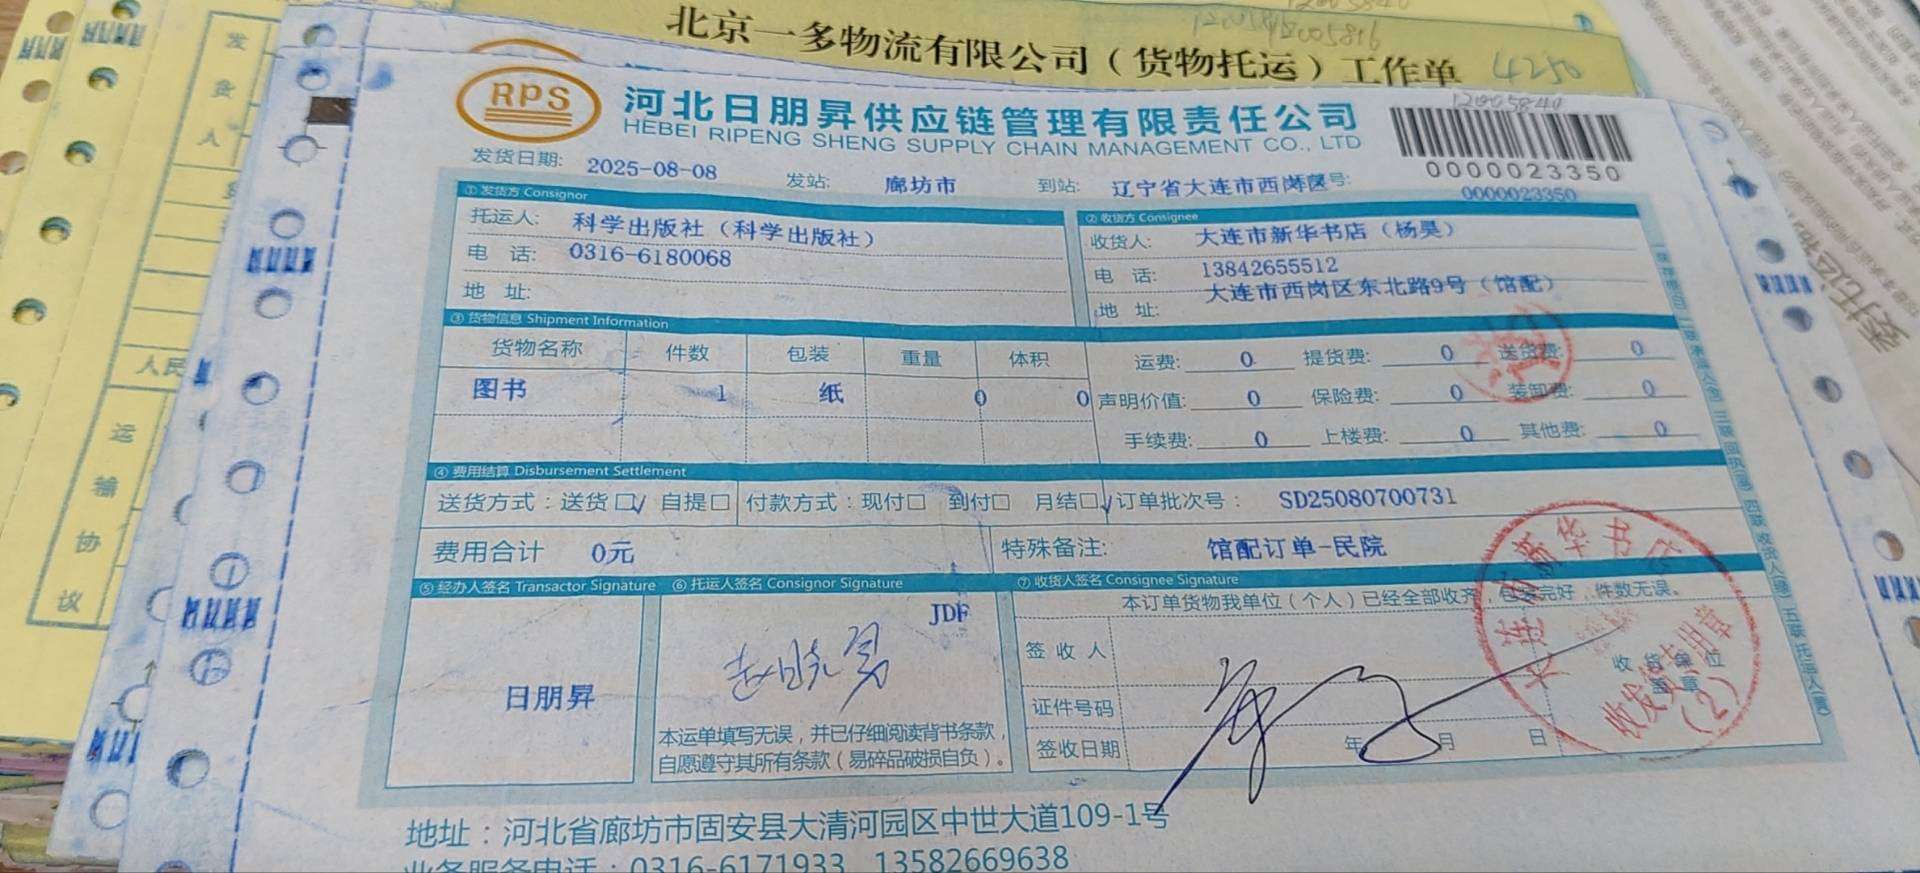 北京一多物流有限公司（货物托运）工作单
4250
12005840
RPS
河北日朋昇供应链管理有限责任公司
HEBEI RIPENG SHENG SUPPLY CHAIN MANAGEMENT CO., LTD
0000023350
发货日期: 2025-08-08 发站: 廊坊市 到站: 辽宁省大连市西岗区 号: 0000023350
① 发货方 Consignor
托运人: 科学出版社（科学出版社）
电 话: 0316-6180068
地 址:
② 收货方 Consignee
收货人: 大连市新华书店（杨昊）
电 话: 13842655512
地 址: 大连市西岗区东北路9号（馆配）
③ 货物信息 Shipment Information
货物名称 件数 包装 重量 体积
图书 1 纸 0 0
运费: 0 提货费: 0 送货费: 0
声明价值: 0 保险费: 0 装卸费: 0
手续费: 0 上楼费: 0 其他费: 0
④ 费用结算 Disbursement Settlement
送货方式：送货☐√ 自提☐ 付款方式：现付☐ 到付☐ 月结☐√ 订单批次号： SD25080700731
费用合计 0元 特殊备注: 馆配订单-民院
⑤ 经办人签名 Transactor Signature
日朋昇
⑥ 托运人签名 Consignor Signature
JDF
赵晓男
本运单填写无误，并已仔细阅读背书条款，
自愿遵守其所有条款（易碎品破损自负）。
⑦ 收货人签名 Consignee Signature
本订单货物我单位（个人）已经全部收齐，包装完好，件数无误。
签 收 人
证件号码
签收日期 年 月 日
收 货 单 位
盖 章
大连市新华书店
收发货专用章
(2)
地址：河北省廊坊市固安县大清河园区中世大道109-1号
业务服务电话：0316-6171933 13582669638
发 货 人
人民
运 输 协 议